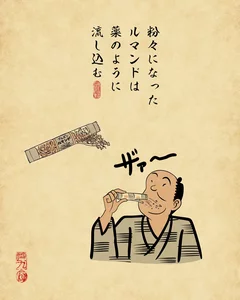 粉々になった
ルマンドは
薬のように
流し込む
ザァ〜